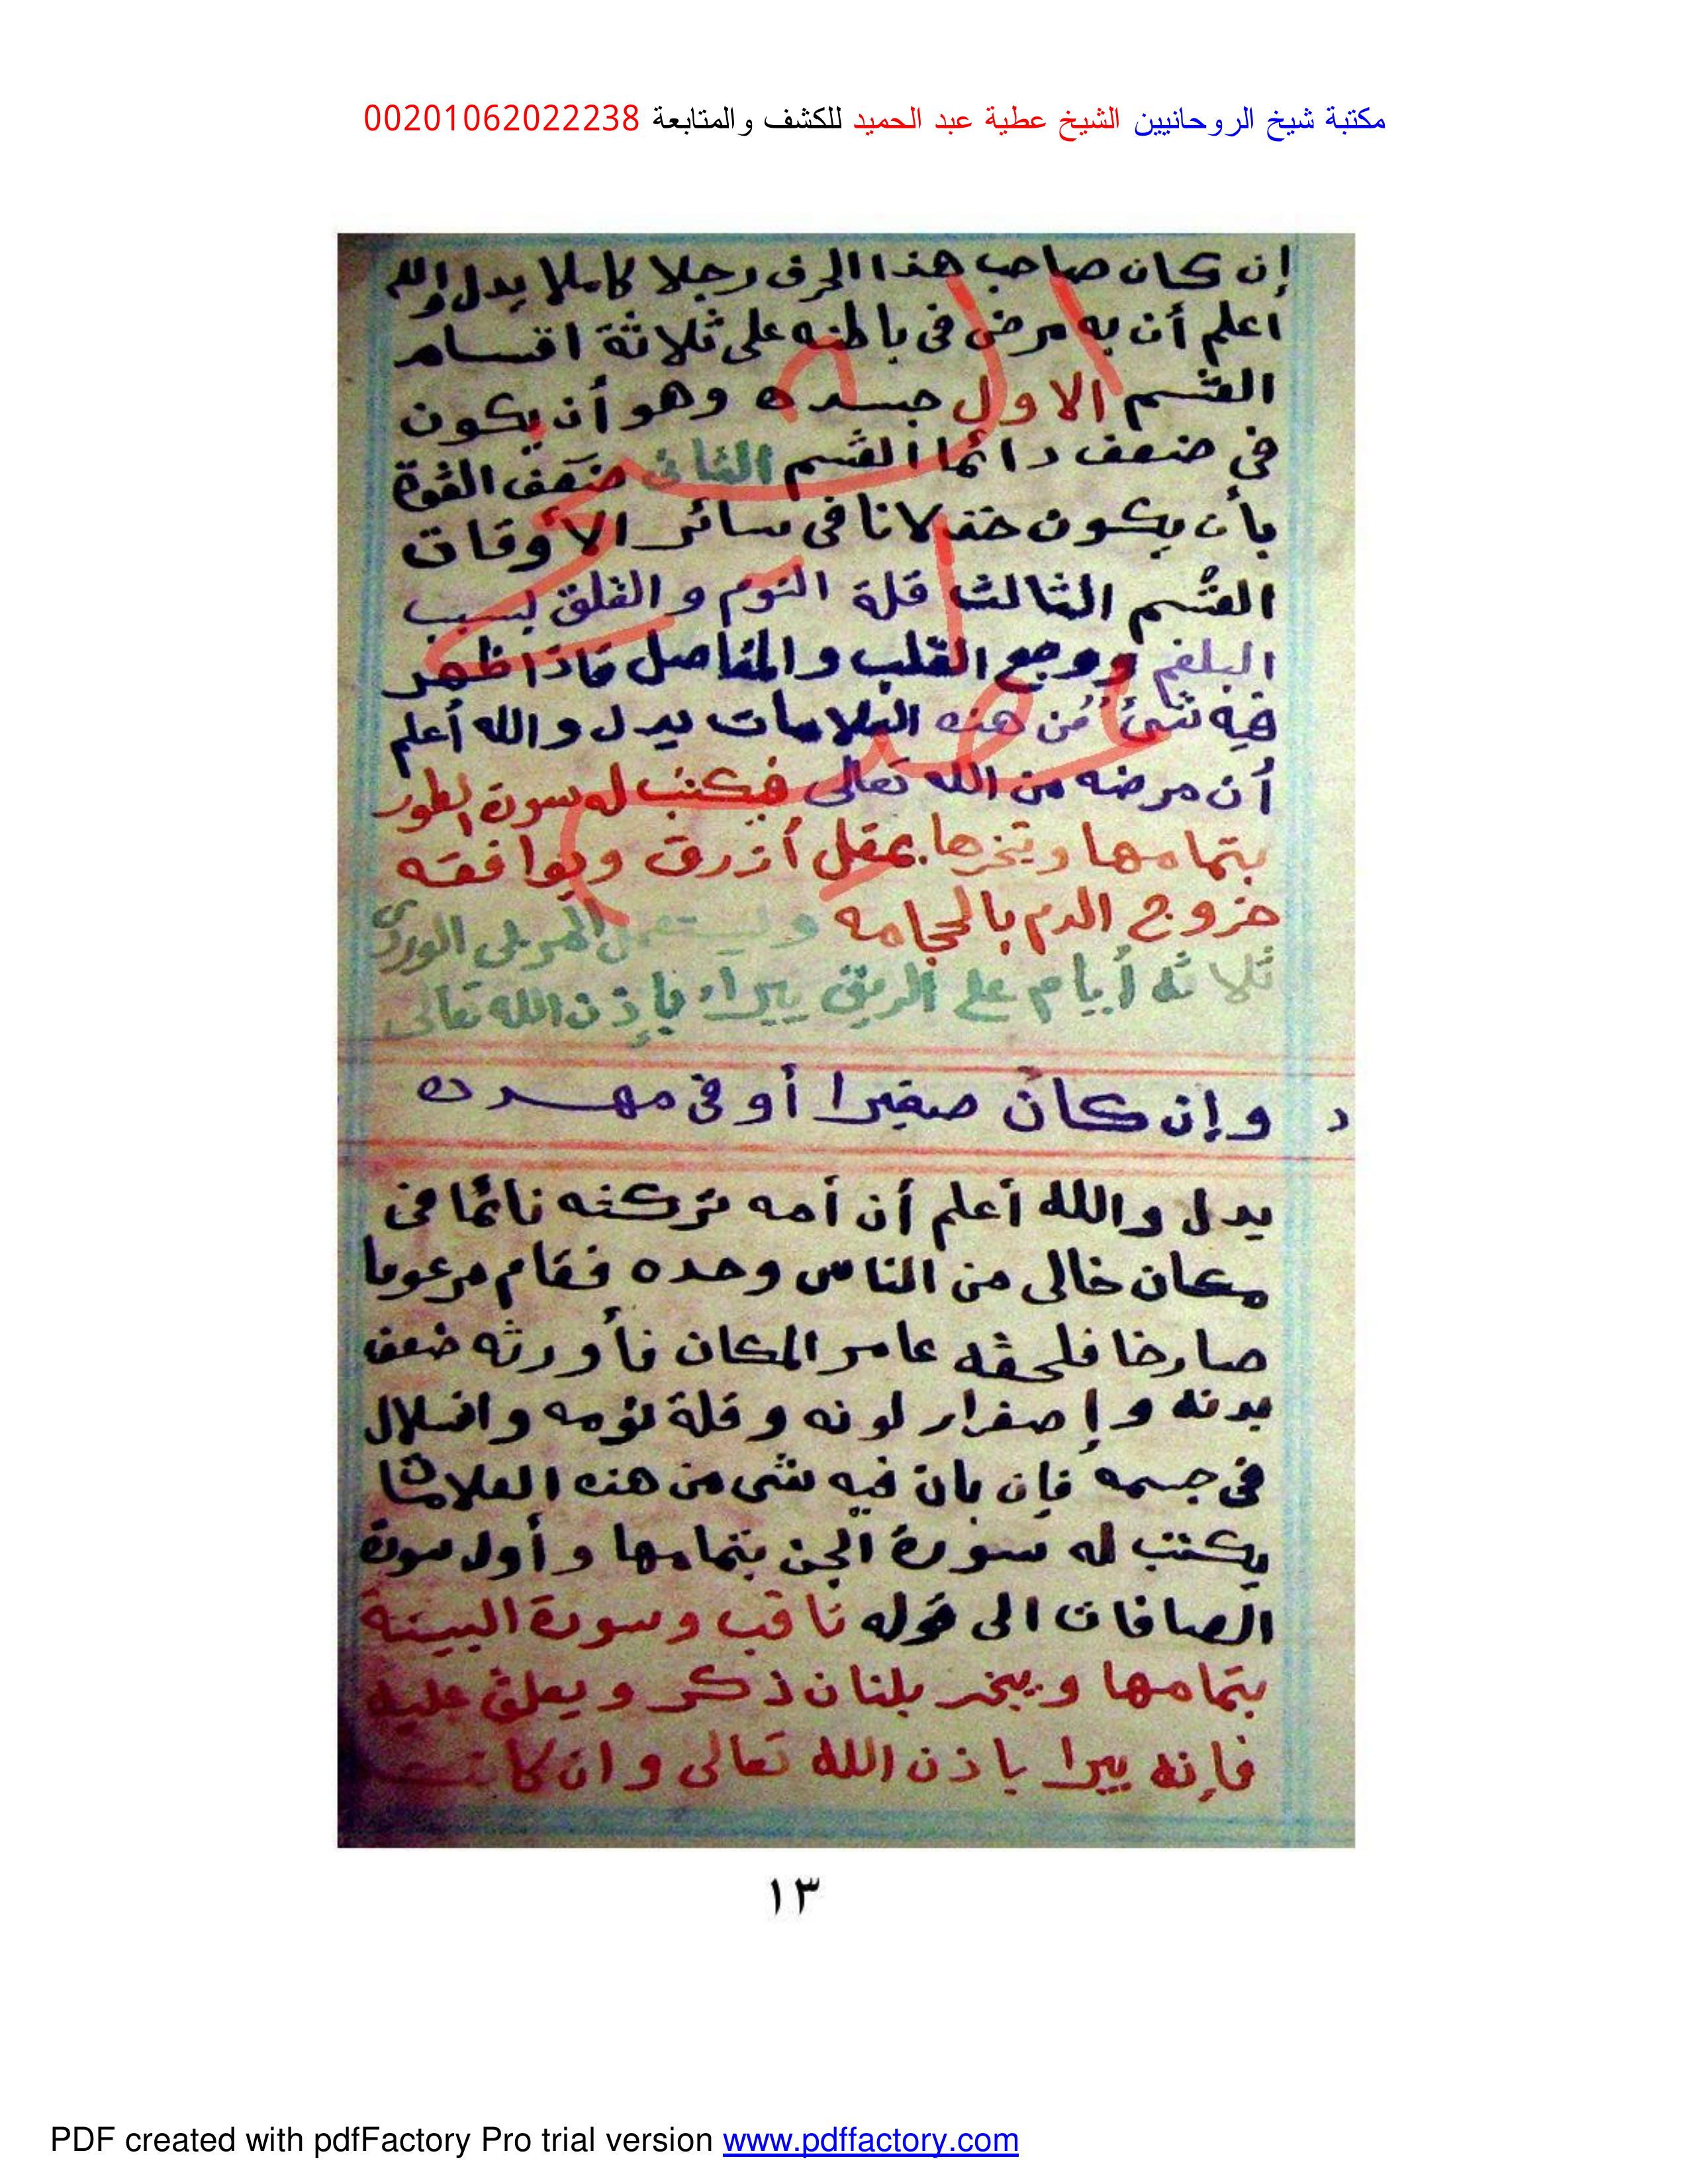 مكتبة شيخ الروحانيين الشيخ عطية عبد الحميد للكشف والمتابعة 00201062022238
إن كان صاحب هذا الحرف رجلا كاملا يدل والله
اعلم أن به مرض فى باطنه على ثلاثة اقسام
القسم الاول جسده وهو أن يكون
فى ضعف دائما القسم الثانى ضعف القوة
بأن يكون خذلانا فى سائر الأوقات
القسم الثالث قلة النوم والقلق بسبب
البلغم ووجع القلب والمفاصل فاذا ظهر
فيه شئ من هذه العلامات يدل والله أعلم
أن مرضه من الله تعالى فيكتب له سورة الطور
بتمامها ويبخرها بمقل أزرق ويوافقه
خروج الدم بالحجامه وليستعمل المربى الوردى
ثلاثه أيام على الريق يبراء بإذن الله تعالى
د وإن كان صغيرا أو فى مهده
يدل والله أعلم أن أمه تركته نائما فى
مكان خالى من الناس وحده فقام مرعوبا
صارخا فلحقه عامر المكان فأورثه ضعف
بدنه وإصفرار لونه وقلة نومه وانسلال
فى جسمه فإن بان فيه شى من هذه العلامات
يكتب له سورة الجن بتمامها وأول سورة
الصافات الى قوله ثاقب وسورة البينة
بتمامها ويبخر بلبان ذكر ويعلق عليه
فإنه يبرا باذن الله تعالى وان كانت
١٣
PDF created with pdfFactory Pro trial version www.pdffactory.com